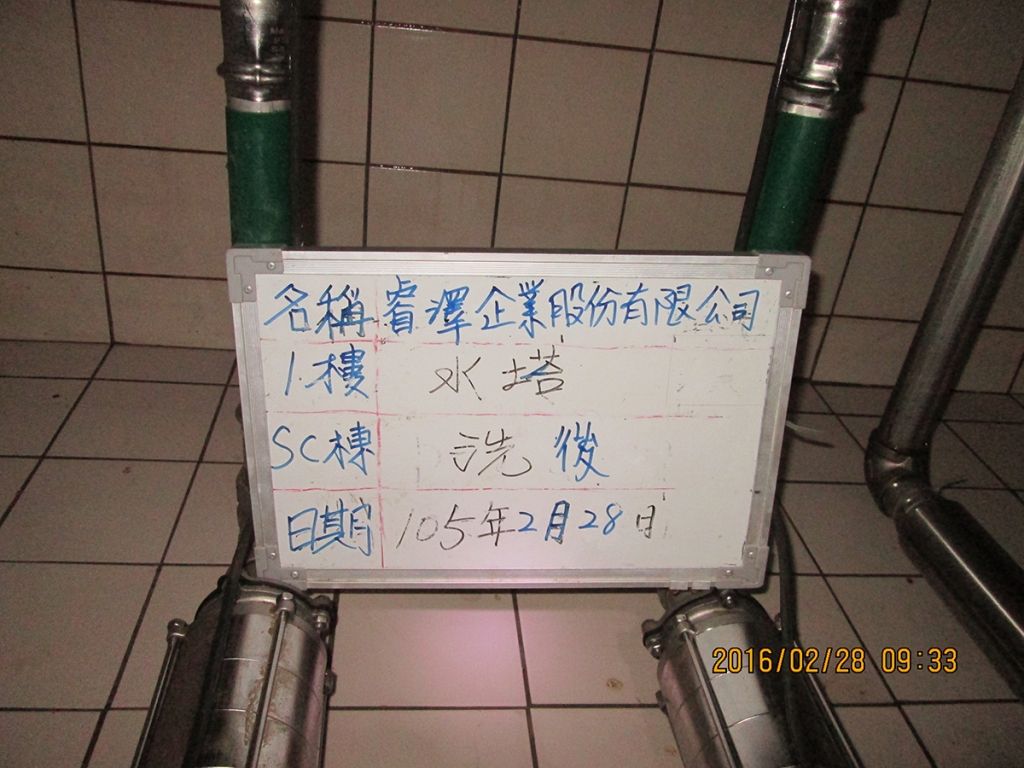 名稱 睿澤企業股份有限公司
1樓 水塔
SC棟 洗後
日期 105年2月28日
2016/02/28 09:33